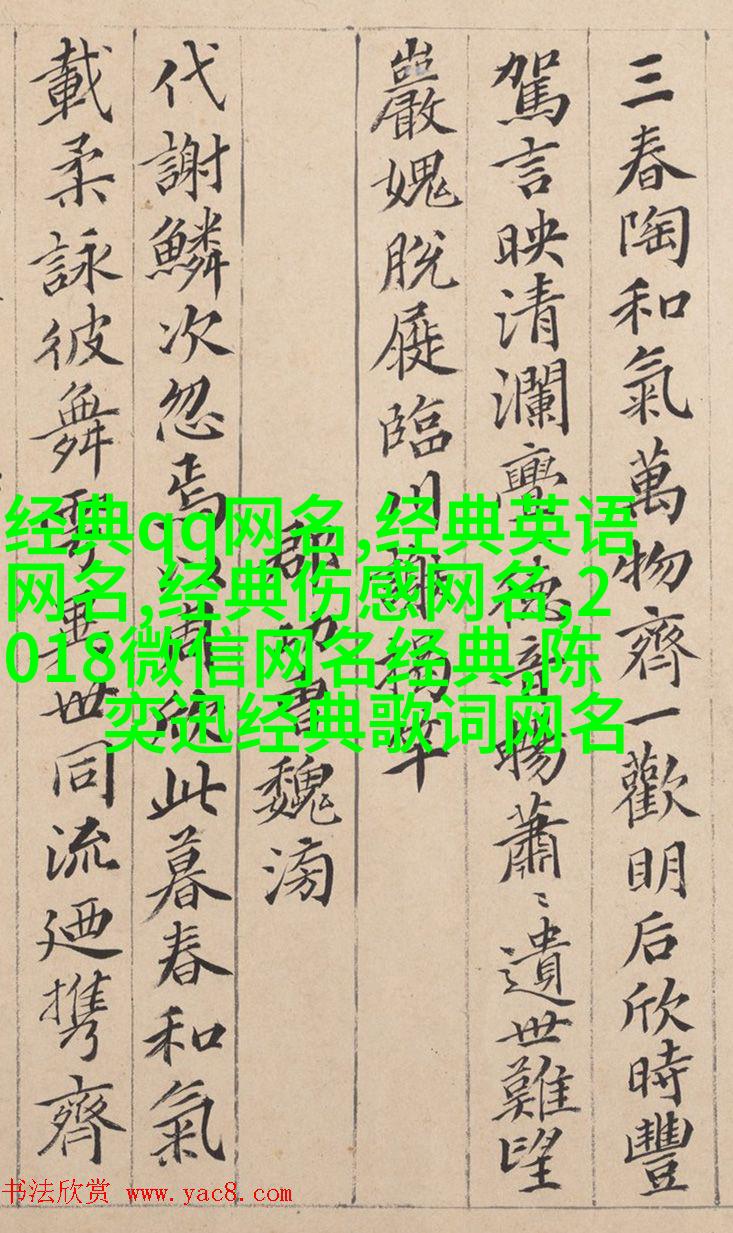 三春陶和氣萬物齊一歡明后欣時豐
駕言映清瀾亹〻德音暢蕭〻遺世難望
巖愧脫屣臨川謝揭竿
郡功曹魏滂
代謝鱗次忽焉以周欣此暮春和氣
載柔詠彼舞雩異世同流廼攜齊
经典qq网名,经典英语
网名,经典伤感网名,2
018微信网名经典,陈
奕迅经典歌词网名
书法欣赏 www.yac8.com